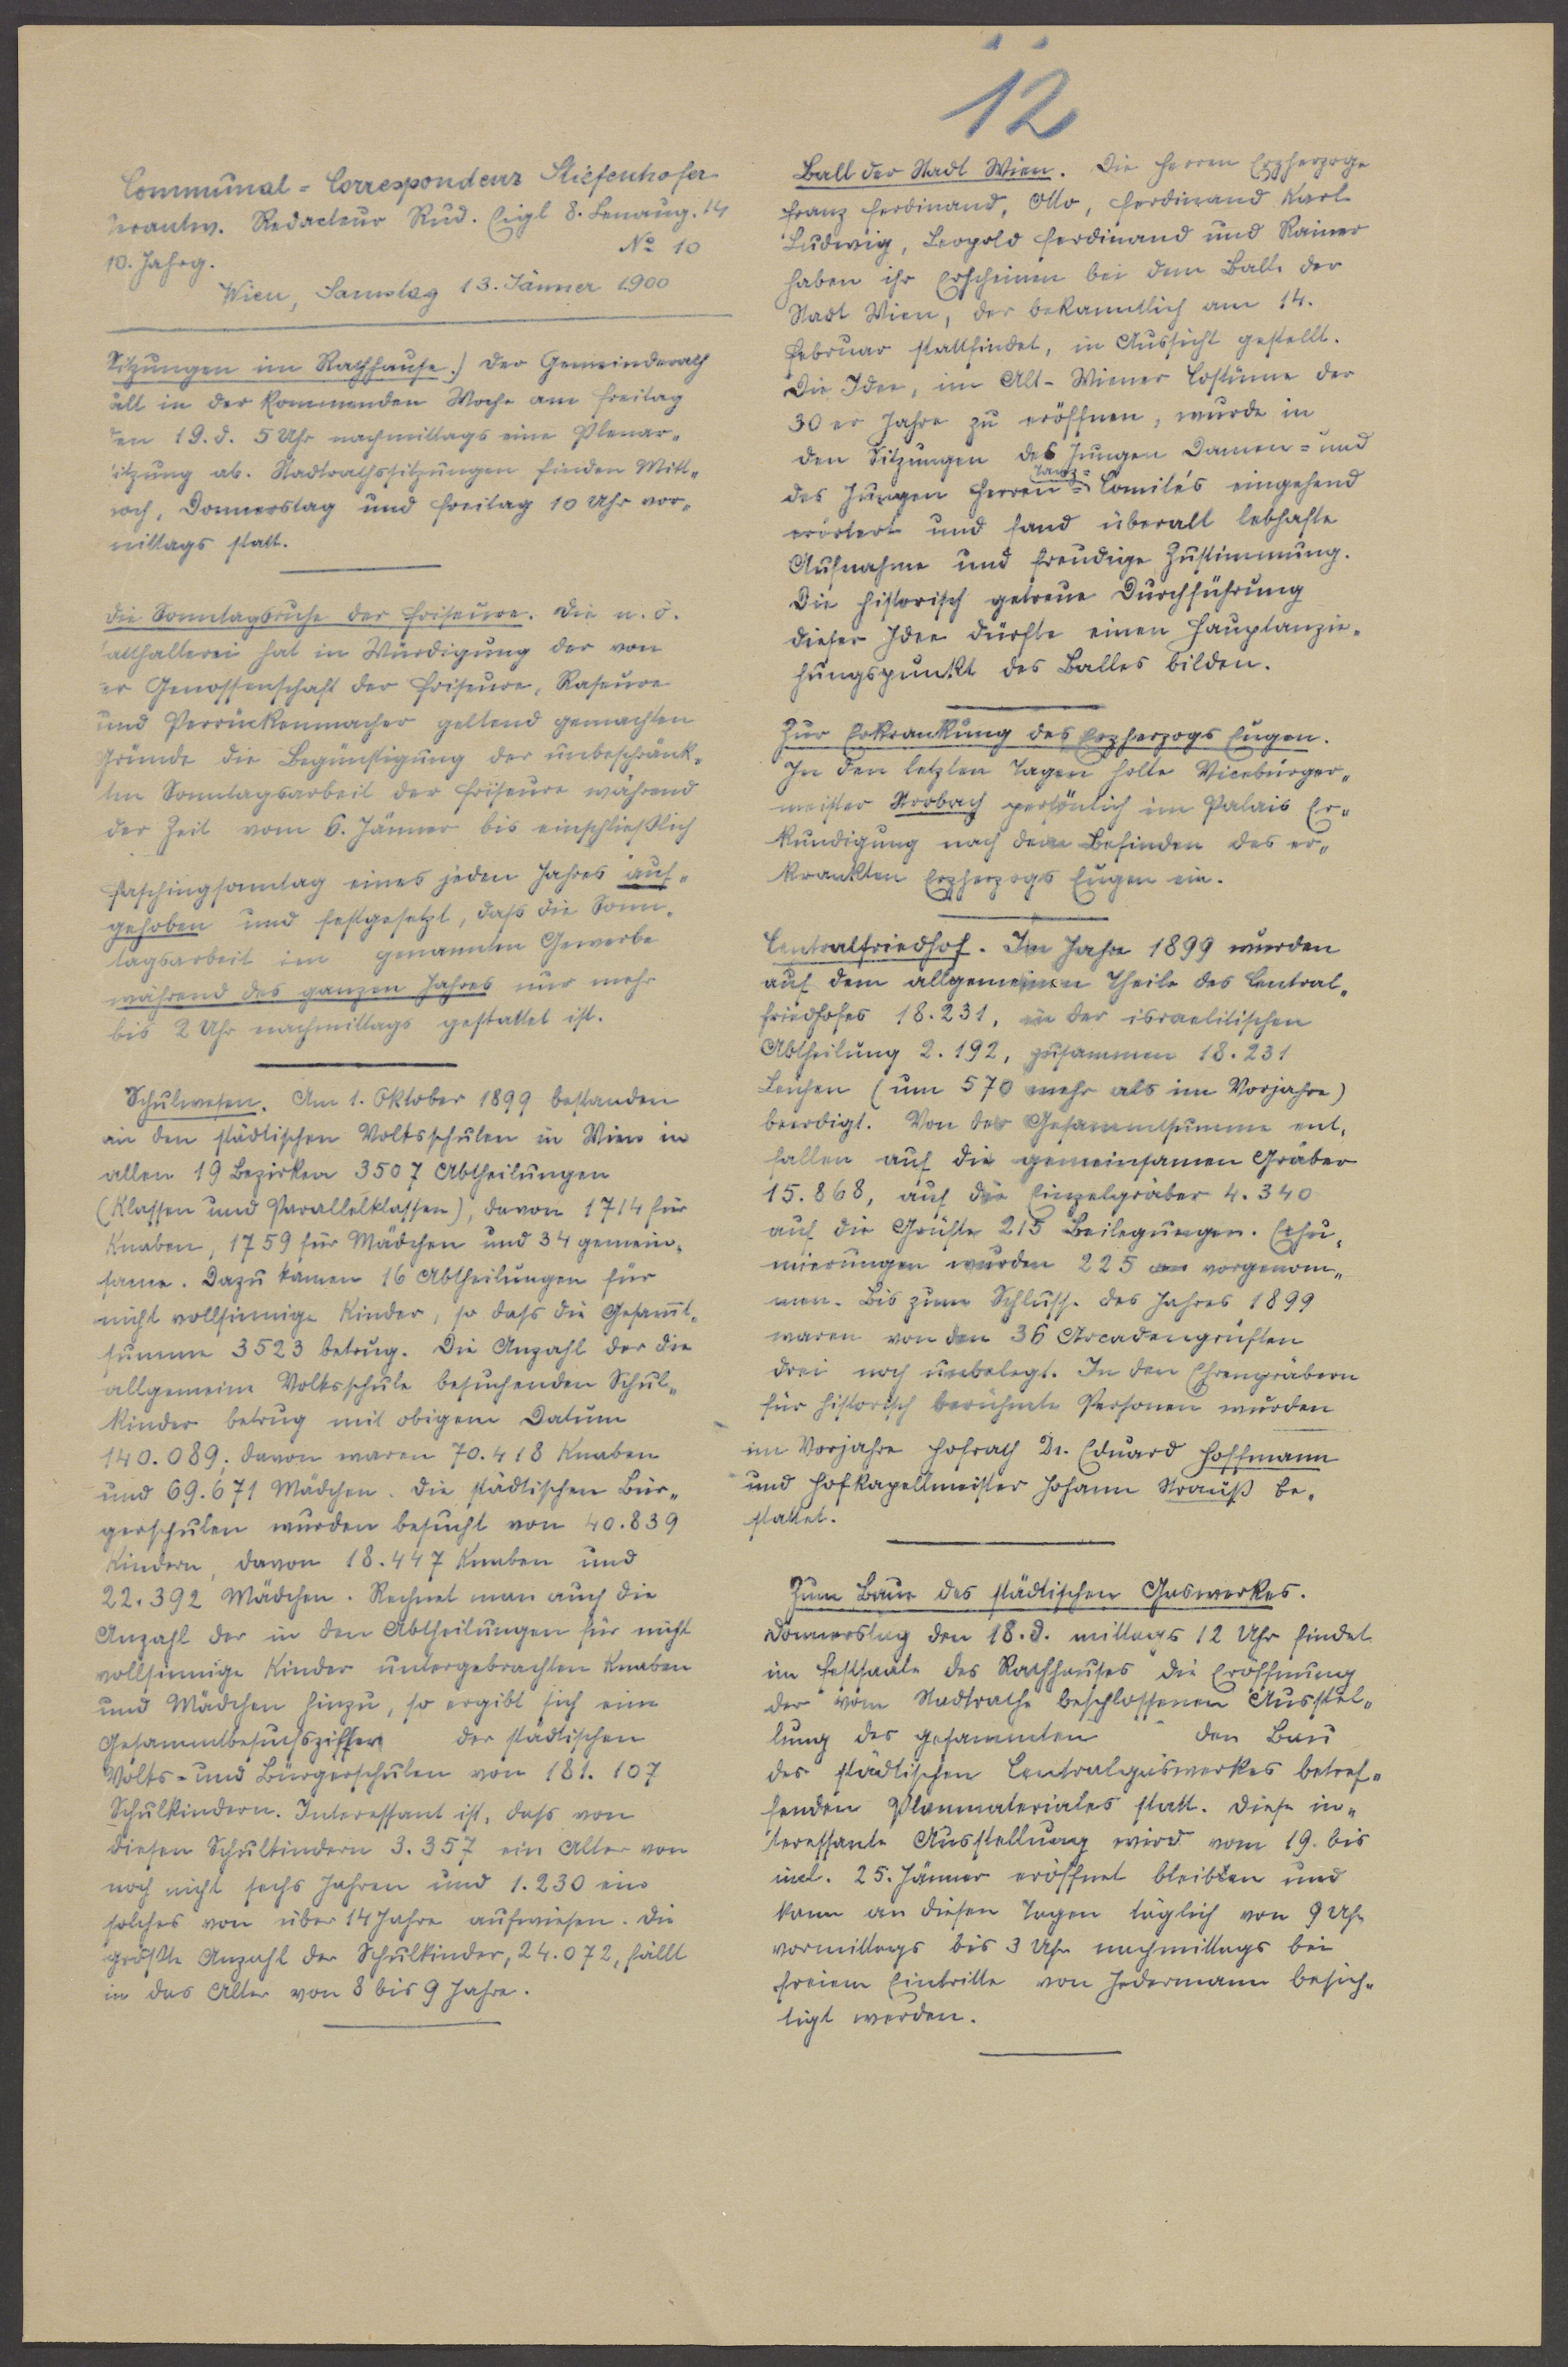 12
Communal-Correspondenz Stiefenhofer
verantw. Redacteur Rud. Eigl 8. Lenaug. 14
10. Jahrg. № 10
Wien, Samstag 13. Jänner 1900
Sitzungen im Rathhause.) Der Gemeinderath
ält in der kommenden Woche am Freitag
den 19. d. 5 Uhr nachmittags eine Plenar-
itzung ab. Stadtrathssitzungen finden Mitt-
woch, Donnerstag und Freitag 10 Uhr vor-
mittags statt.
Die Sonntagsruhe der Friseure. Die n. ö.
tatthalterei hat in Würdigung der von
er Genossenschaft der Friseure, Raseure
und Perrückenmacher geltend gemachten
Gründe die Begünstigung der unbeschränk-
ten Sonntagsarbeit der Friseure während
der Zeit vom 6. Jänner bis einschließlich
Faschingsonntag eines jeden Jahres auf-
gehoben und festgesetzt, dass die Sonn-
tagsarbeit im genannten Gewerbe
während des ganzen Jahres nur mehr
bis 2 Uhr nachmittags gestattet ist.
Schulwesen. Am 1. Oktober 1899 bestanden
an den städtischen Volksschulen in Wien in
allen 19 Bezirken 3507 Abtheilungen
(Klassen und Parallelklassen), davon 1714 für
Knaben, 1759 für Mädchen und 34 gemein-
same. Dazu kamen 16 Abtheilungen für
nicht vollsinnige Kinder, so dass die Gesam̄t-
summe 3523 betrug. Die Anzahl der die
allgemeine Volksschule besuchenden Schul-
kinder betrug mit obigem Datum
140.089; davon waren 70.418 Knaben
und 69.671 Mädchen. Die städtischen Bür-
gerschulen wurden besucht von 40.839
Kindern, davon 18.447 Knaben und
22.392 Mädchen. Rechnet man auch die
Anzahl der in den Abtheilungen für nicht
vollsinnige Kinder untergebrachten Knaben
und Mädchen hinzu, so ergibt sich eine
Gesammtbesuchsziffer der städtischen
Volks- und Bürgerschulen von 181.107
Schulkindern. Interessant ist, dass von
diesen Schulkindern 3.357 ein Alter von
noch nicht sechs Jahren und 1.230 ein
solches von über 14 Jahre aufwiesen. Die
größte Anzahl der Schulkinder, 24.072, fällt
in das Alter von 8 bis 9 Jahre.
Ball der Stadt Wien. Die Herren Erzherzoge
Franz Ferdinand, Otto, Ferdinand Karl
Ludwig, Leopold Ferdinand und Rainer
haben ihr Erscheinen bei dem Balle der
Stadt Wien, der bekanntlich am 14.
Februar stattfindet, in Aussicht gestellt.
Die Idee, im Alt-Wiener Costüme der
30er Jahre zu eröffnen, wurde in
den Sitzungen des Jungen Damen- und
Tanz-
des Jungen Herren-Comités eingehend
erörtert und fand überall lebhafte
Aufnahme und freudige Zustimmung.
Die historisch getreue Durchführung
dieser Idee dürfte einen Hauptanzie-
hungspunkt des Balles bilden.
Zur Erkrankung des Erzherzogs Eugen.
In den letzten Tagen holte Vicebürger-
meister Strobach persönlich im Palais Er-
kundigung nach dem Befinden des er-
krankten Erzherzogs Eugen ein.
Centralfriedhof. Im Jahre 1899 wurden
auf dem allgemeinen Theile des Central-
friedhofes 18.231, in der israelitischen
Abtheilung 2.192, zusammen 18.231
Leichen (um 570 mehr als im Vorjahre)
beerdigt. Von der Gesammtsumme ent-
fallen auf die gemeinsamen Gräber
15.868, auf die Einzelgräber 4.340
auf die Grüfte 215 Beilegungen. Exhu-
mierungen wurden 225 vorgenom-
men. Bis zum Schlusse des Jahres 1899
waren von den 36 Arcadengrüften
drei noch unbelegt. In den Ehrengräbern
für historisch berühmte Personen wurden
im Vorjahre Hofrath Dr. Eduard Hoffmann
und Hofkapellmeister Johann Strauß be-
stattet.
Zum Baue des städtischen Gaswerkes.
Donnerstag den 18. d. mittags 12 Uhr findet
im Festsaale des Rathhauses die Eröffnung
der vom Stadtrathe beschlossenen Ausstel-
lung des gesammten den Bau
des städtischen Centralgaswerkes betref-
fenden Planmateriales statt. Diese in-
teressante Ausstellung wird vom 19. bis
incl. 25. Jänner eröffnet bleiben und
kann an diesen Tagen täglich von 9 Uhr
vormittags bis 3 Uhr nachmittags bei
freiem Eintritte von Jedermann besich-
tigt werden.